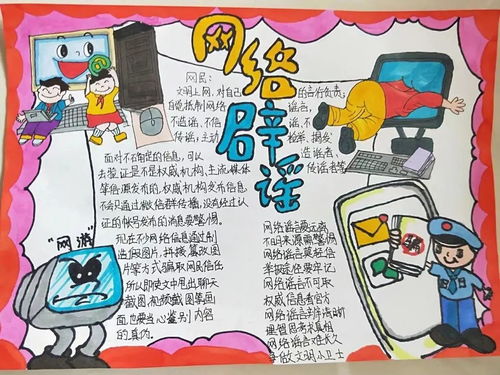 网络辟谣
网民：
文明上网，对自己的言行负责；
自觉抵制网络谣言，
不造谣、不信谣、不
传谣，主动检举、揭发
造谣者、
传谣者等
面对不确定的信息，可以
去验证是不是权威机构、主流媒体
等信源发布的，权威机构发布信息
不会只通过微信群传播，没有经过认
证的帐号发布的消息要警惕。
现在不少网络信息通过制
造假图片，拼接篡改图
片等方式骗取网民信任
所以即使文中甩出聊天
截图、视频截图等画
面也要当心鉴别内容
的真伪。
"网游"
网络谣言要远离
不明来源需警惕
网络谣言莫轻信
举报途径要牢记
网络谣言不可取
权威信息看官方
网络谣言
理智思考求真相
网络谣言难长久
争做文明小卫士